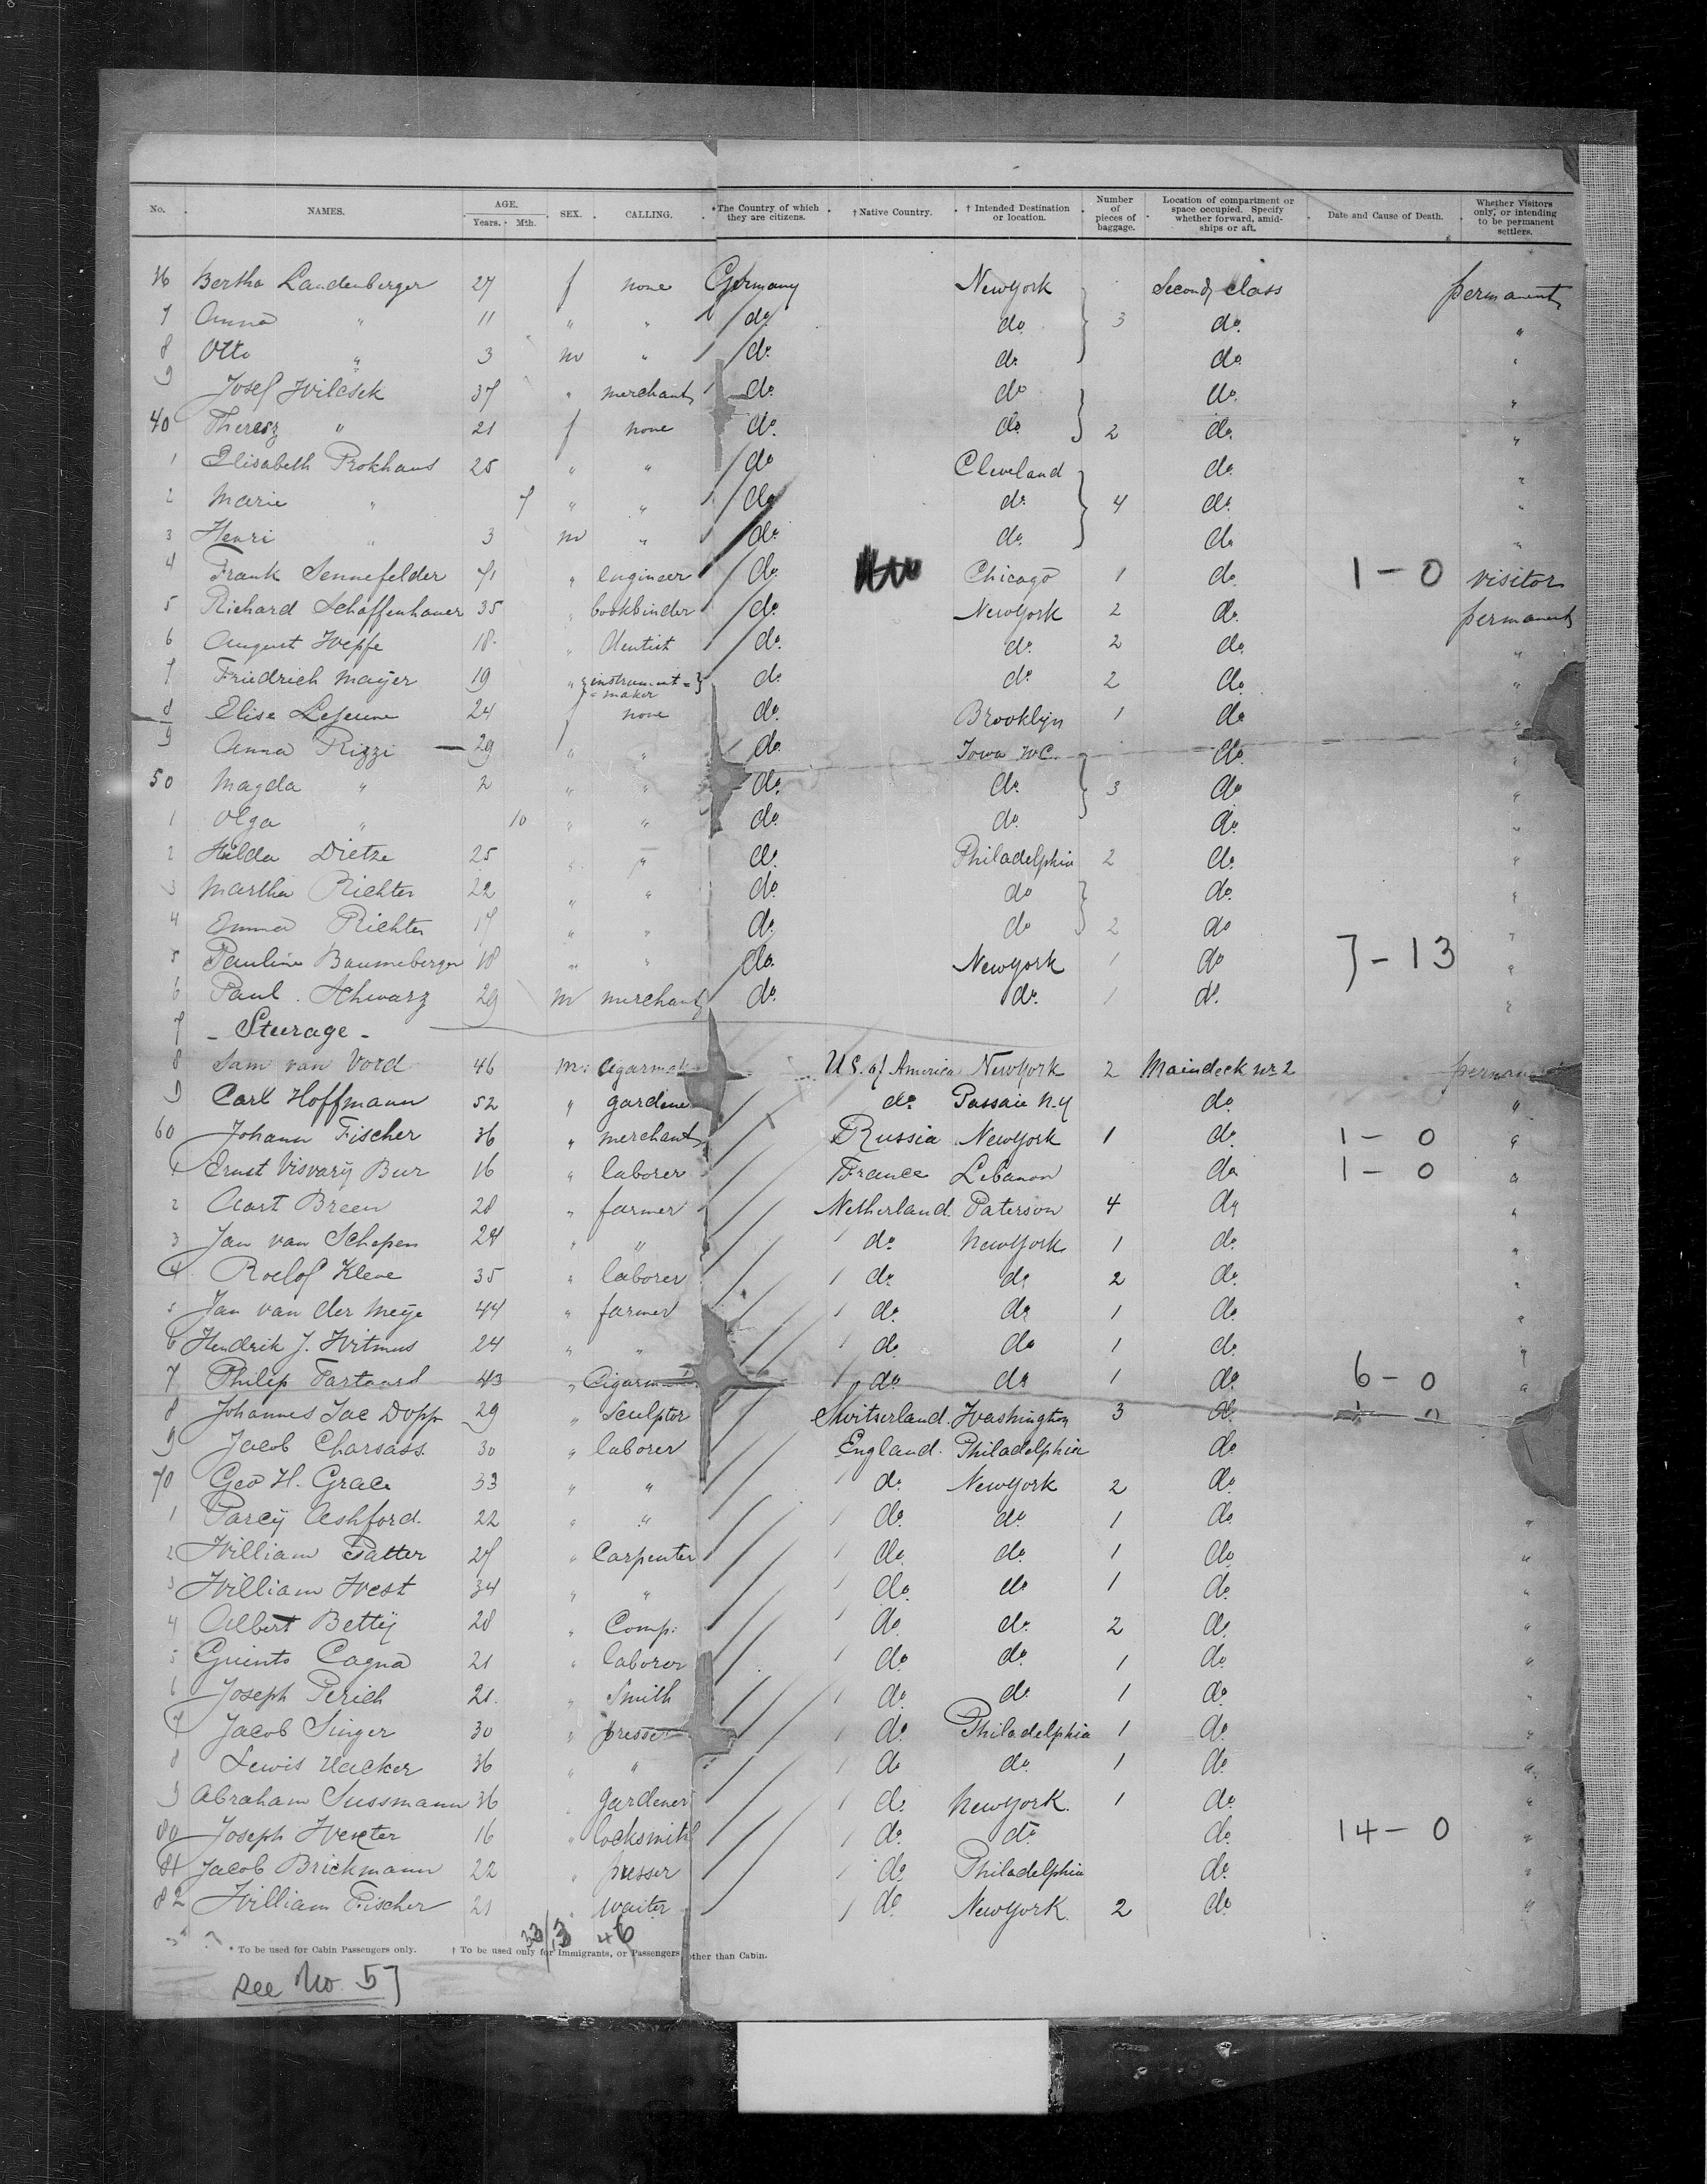 No. NAMES. AGE. Years. Mth. SEX. CALLING. *The Country of which they are citizens. † Native Country. † Intended Destination or location. Number of pieces of baggage. Location of compartment or space occupied. Specify whether forward, amidships or aft. Date and Cause of Death. Whether Visitors only, or intending to be permanent settlers.
36 Bertha Landenberger 27 f none Germany New York Second class permanent
7 Anna " 11 " " do. do 3 do. "
8 Otto " 3 m " do. do. do. "
9 Josef Wilcsek 37 " merchant do. do do. "
40 Theresz " 21 f none do. do 2 do. "
1 Elisabeth Prokhaus 25 " " do Cleveland do. "
2 Marie " 7 " " do do. 4 do. "
3 Henri " 3 m " do. do. do "
4 Frank Sennefelder 71 " engineer do. Chicago 1 do. 1 - 0 visitor
5 Richard Schaffenhauer 35 " bookbinder do. New York 2 do. permanent
6 August Weppe 18 " dentist do. do. 2 do. "
7 Friedrich Mayer 19 " instrument= =maker do. do. 2 do. "
8 Elise Lejeune 24 f none do. Brooklyn 1 do "
9 Anna Rizzi 29 " " do. Iowa do. "
50 Magda " 2 " " do. do. 3 do "
1 Olga " 10 " " do. do. do. "
2 Hilda Dietze 25 " " do. Philadelphia 2 do. "
3 Martha Richter 22 " " do. do do. "
4 Emma Richter 17 " " do. do 2 do "
5 Pauline Baumeberger 18 " " do. New York 1 do 7 - 13 "
6 Paul Schwarz 29 m merchant do. do. 1 do. "
7 - Steerage -
8 Sam van Vord 46 m. Cigarmak U.S. of America New York 2 Maindeck No 2 perman
9 Carl Hoffmann 52 " gardene do. Passaic N.Y do. "
60 Johann Fischer 36 " merchant Russia New York 1 do. 1 - 0 "
1 Ernst Visvary Bur 16 " laborer France Lebanon do 1 - 0 "
2 Aart Breen 28 " farmer Netherland. Paterson 4 do "
3 Jan van Schepen 24 " " do. New York 1 do. "
4 Roelof Kleve 35 " laborer do. do 2 do. "
5 Jan van der Meije 44 " farmer do. do 1 do. "
6 Hendrik J. Witmus 24 " " do. do 1 do. "
7 Philip 43 " Cigarm do. do 1 do. 6 - 0 "
8 Johannes Jac Dopp 29 " Sculptor Switserland. Washington 3 do.
9 Jacob Charsass. 30 " laborer England. Philadelphia do
70 Geo H. Grace 33 " " do. New York 2 do.
1 Parcy Ashford. 22 " " do. do. 1 do. "
2 William Patter 27 " Carpenter do. do. 1 do "
3 William West 34 " " do. do 1 do. "
4 Albert Betty 28 " Comp. do. do. 2 do. "
5 Guinto Cagna 21 " laborer do. do. 1 do. "
6 Joseph Perich 21. " Smith do. do. 1 do. "
7 Jacob Singer 30 " presser do. Philadelphia 1 do. "
8 Lewis Hacker 36 " " do do. 1 do. "
9 Abraham Sussmann 36 " gardener do. New York. 1 do. "
80 Joseph Wexter 16 " locksmith do. do. do. 14 - 0 "
81 Jacob Brickmann 22 " presser do. Philadelphia do. "
82 William Fischer 21 " waiter do New York. 2 do. "
33 / 13 46
* To be used for Cabin Passengers only. † To be used only for Immigrants, or Passengers other than Cabin.
see No. 57